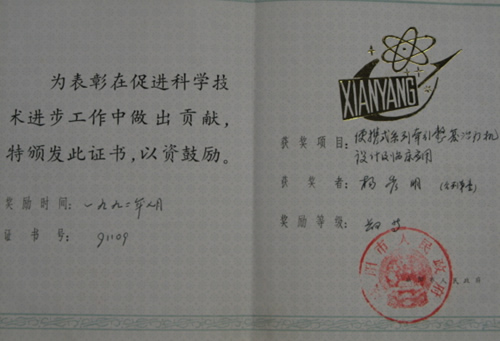 为表彰在促进科学技
术进步工作中做出贡献，
特颁发此证书，以资鼓励。
奖励时间：一九九二年 月
证书号：91109
XIANYANG
获奖项目：便携式系列牵引整复治疗机
设计及临床应用
获奖者：杨 明
奖励等级：
咸阳市人民政府
人民政府